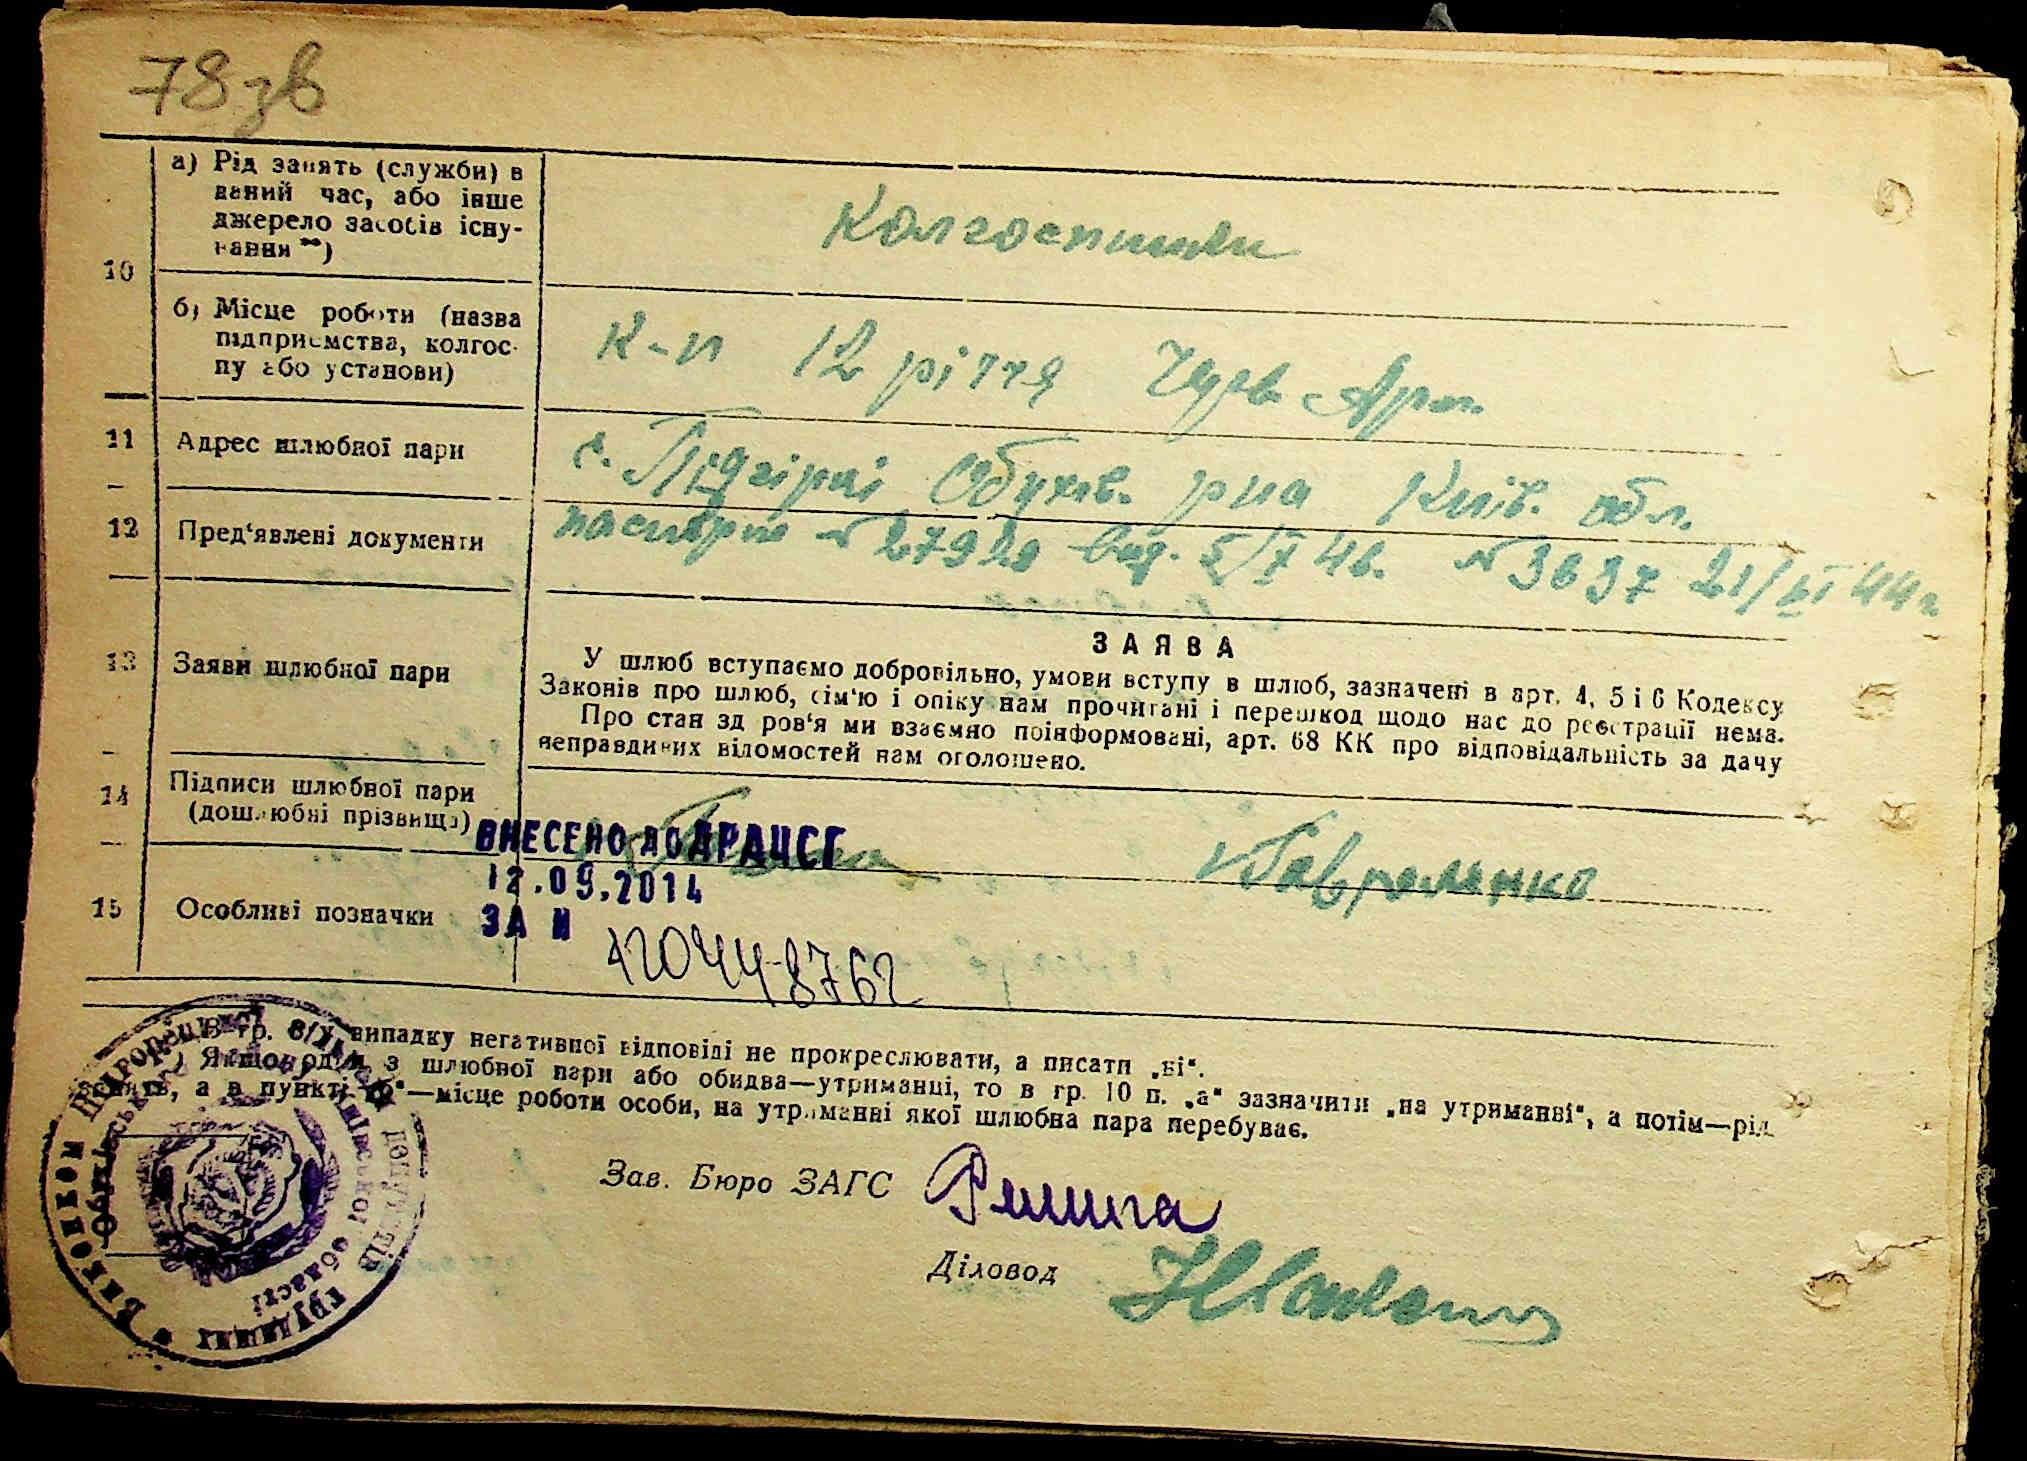 78 зв
10
а) Рід занять (служби) в
даний час, або інше
джерело засобів існу-
вання **)
Колгоспники
б) Місце роботи (назва
підприємства, колгос-
пу або установи)
к-п 12 річчя Черв. Арм.
11
Адрес шлюбної пари
с. Підгірці Обухів. р-на Київ. обл.
12
Пред'явлені документи
паспорт № 27928 вид. 5/X 46. № 3637 21/XI 44 г.
13
Заяви шлюбної пари
ЗАЯВА
У шлюб вступаємо добровільно, умови вступу в шлюб, зазначені в арт. 4, 5 і 6 Кодексу
Законів про шлюб, сім'ю і опіку нам прочитані і перешкод щодо нас до реєстрації нема.
Про стан здоров'я ми взаємно поінформовані, арт. 68 КК про відповідальність за дачу
неправдивих відомостей нам оголошено.
14
Підписи шлюбної пари
(дошлюбні прізвища)
Гавриленко
ВНЕСЕНО ДО ДРАЦСГ
12.09.2014
ЗА №
15
Особливі позначки
120448762
В гр. 8/X випадку негативної відповіді не прокреслювати, а писати „ні“.
Якщо один з шлюбної пари або обидва—утриманці, то в гр. 10 п. „а“ зазначити „на утриманні“, а потім—рід
занять, а в пункті „б“—місце роботи особи, на утриманні якої шлюбна пара перебуває.
Зав. Бюро ЗАГС
Діловод
Виконком Підгорецької сільської ради депутатів трудящих
Обухівського району Київської області